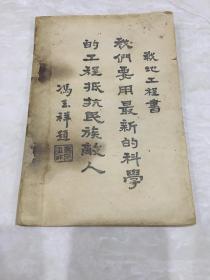 战地工程书
我們要用最新的科學
的工程抵抗民族敵人
馮玉祥題